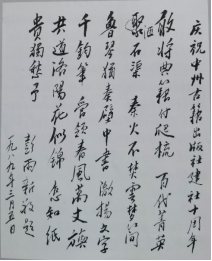 庆祝中州古籍出版社建社十周年
敢将典籍付爬梳 百代菁英
聚石渠 秦火不焚云梦简
鲁琴独奏壁中书 激扬文字
千钧笔 管领春风万丈旗
共道洛阳花似锦 应知纸
贵独愁予
彭雨新敬题
一九八九年三月五日